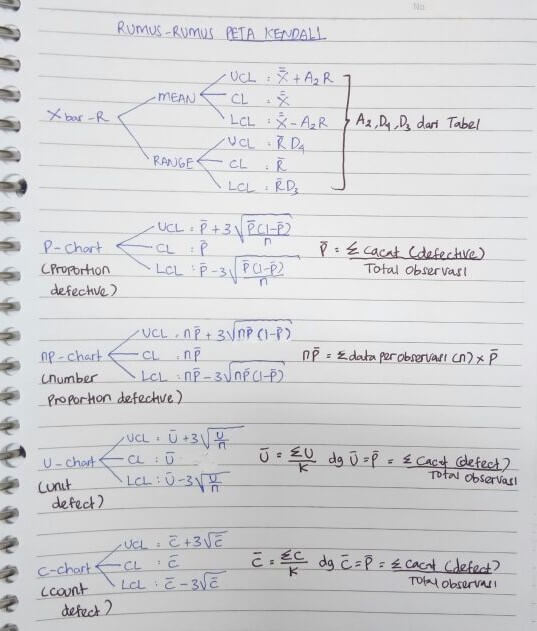 No
RUMUS-RUMUS PETA KENDALL
Xbar-R
MEAN
UCL : X̿ + A₂ R
CL : X̿
LCL : X̿ - A₂ R
RANGE
UCL : R̄ D₄
CL : R̄
LCL : R̄ D₃
A₂, D₄, D₃ dari Tabel
P-chart
(Proportion
defective)
UCL : P̄ + 3√(P̄(1-P̄)/n)
CL : P̄
LCL : P̄ - 3√(P̄(1-P̄)/n)
P̄ = Σ cacat (defective) / Total Observasi
np-chart
(number
proportion defective)
UCL : nP̄ + 3√nP̄(1-P̄)
CL : nP̄
LCL : nP̄ - 3√nP̄(1-P̄)
nP̄ = Σ data per observasi (n) × P̄
U-chart
(unit
defect)
UCL : Ū + 3√(U/n)
CL : Ū
LCL : Ū - 3√(U/n)
Ū = ΣU/K dg Ū = P̄ = Σ Cacat (defect) / Total Observasi
C-chart
(count
defect)
UCL : C̄ + 3√C̄
CL : C̄
LCL : C̄ - 3√C̄
C̄ = ΣC/K dg C̄ = P̄ = Σ cacat (defect) / Total Observasi